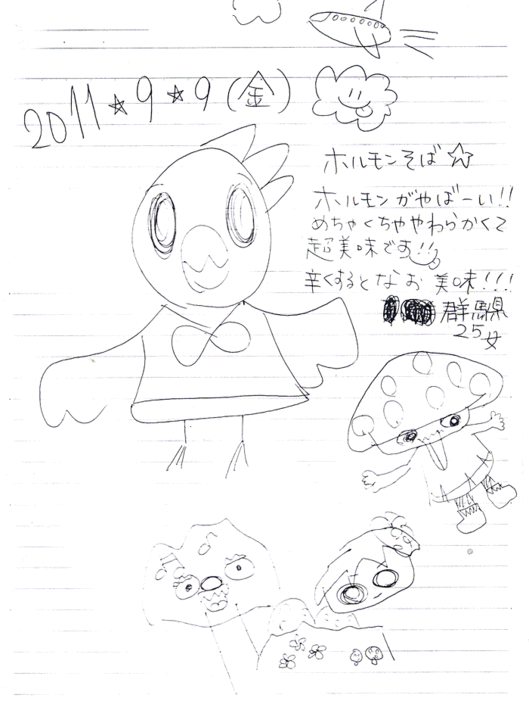 2011☆9☆9(金)
ホルモンそば☆
ホルモンがやばーい!!
めちゃくちゃやわらかくて
超美味です!!
辛くするとなお美味!!!
群馬県
25女